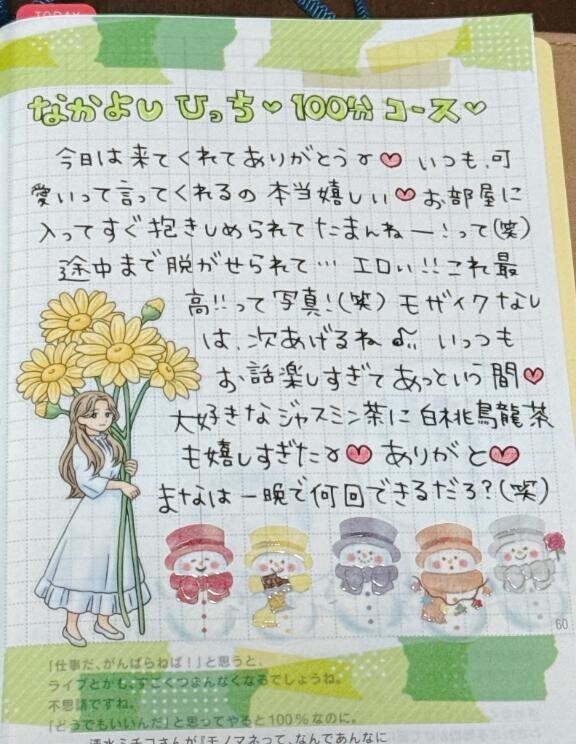 TODAY
なかよし ひっち♡100分 コース♡
今日は来てくれてありがとうɤ♥ いつも、可
愛いって言ってくれるの 本当嬉しい♥ お部屋に
入ってすぐ抱きしめられてたまんねー!って(笑)
途中まで脱がせられて… エロい!! これ最
高!!って写真!(笑) モザイクなし
は、次あげるね♫ いっつも
お話楽しすぎてあっという間♥
大好きなジャスミン茶に白桃烏龍茶
も嬉しすぎたɤ♥ ありがと♥
まなは一晩で何回できるだろ?(笑)
60
「仕事だ、がんばらねば!」と思うと、
ライブとかも、すごくつまんなくなるでしょうね。
不思議ですね。
「どうでもいいんだ」と思ってやると100%なのに。
清水ミチコさんが『モノマネって、なんであんなに